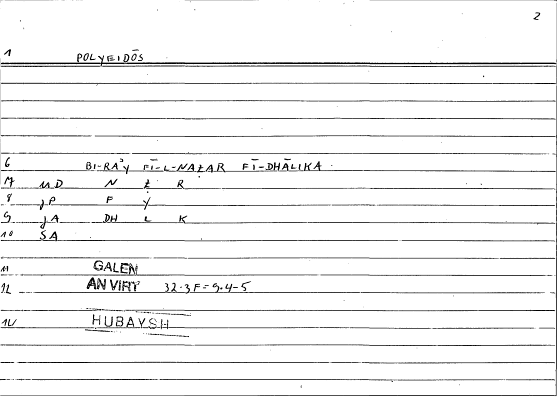 2
1 POLYEIDŌS
6 BI-RAʾY FĪ-L-NAẒAR FĪ-DHĀLIKA
M D N Ẓ R
8 P F Y
9 A DH L K
10 SA
11 GALEN
12 AN VIRT 32.3F=9.4-5
HUBAYSH